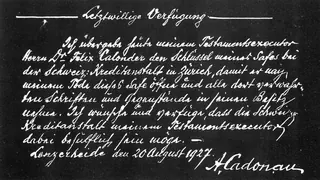 Letztwillige Verfügung
Ich übergebe heute meinem Testamentsexecutor
Herrn Dr. Felix Calonder den Schlüssel meines Safes bei
der Schweiz. Kreditanstalt in Zürich, damit er nach
meinem Tode diesen Safe öffnen und alle dort verwahr-
ten Schriften und Gegenstände in seinen Besitz
nehme. Ich wünsche und verfüge, dass die Schweiz.
Kreditanstalt meinem Testamentsexecutor
dabei behilflich sein möge. —
Lenzerheide den 20 August 1927.
A. Cadonau